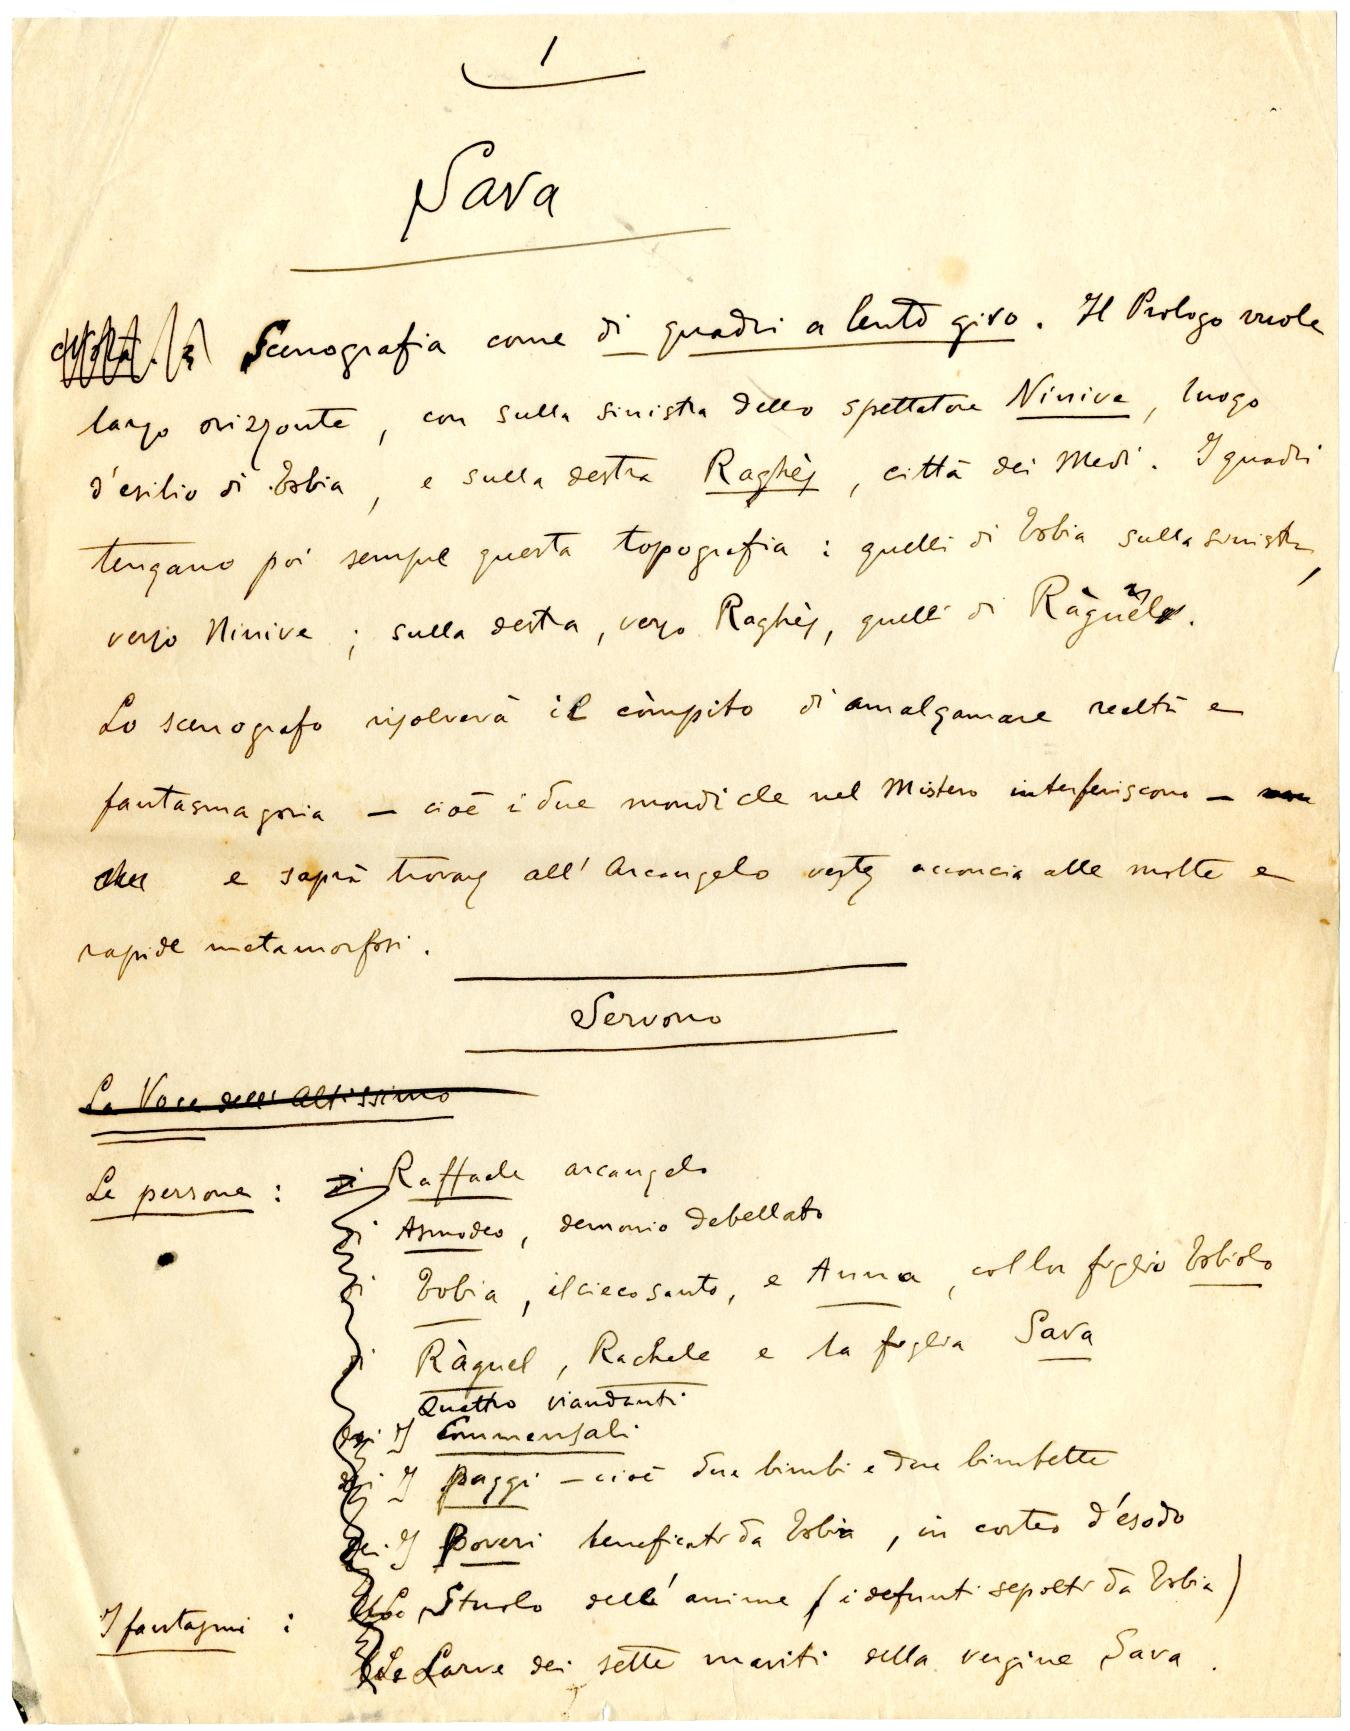 1
Sava
Scenografia come di quadri a lento giro. Il Prologo vuole
largo orizzonte, con sulla sinistra dello spettatore Ninive, luogo
d'esilio di Tobia, e sulla destra Raghès, città dei Medi. I quadri
tengano poi sempre questa topografia: quelli di Tobia sulla sinistra,
verso Ninive; sulla destra, verso Raghès, quelli di Ràguel.
Lo scenografo risolverà il còmpito di amalgamare realtà e
fantasmagoria — cioè i due mondi che nel Mistero interferiscono —
e saprà trovare all'Arcangelo veste acconcia alle molte e
rapide metamorfosi.
Servono
La Voce dell'Altissimo
Le persone: Raffaele arcangelo
Asmodeo, demonio debellato
Tobia, il cieco santo, e Anna, col lor figlio Tobiolo
Ràguel, Rachele e la figlia Sara
Quattro viandanti
I Commensali
I paggi — cioè due bimbi e due bimbette
I Poveri beneficati da Tobia, in corteo d'ésodo
I fantasmi: Lo Stuolo dell'anime (i defunti sepolti da Tobia)
Le Larve dei sette mariti della vergine Sara.